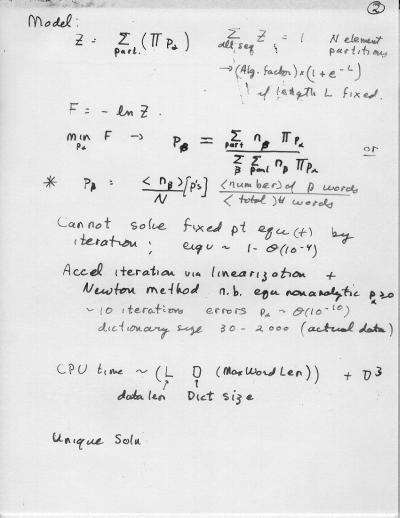 ②
Model:
Z = Σ_part. (∏ p_α)   Σ_all seq Z = 1   N element partitions
→ (Alg. factor) × (1 + e^-L)
if length L fixed.
F = - ln Z.
min_pα F → P_β = Σ_part n_β ∏ p_α / Σ_β Σ_part n_β ∏ p_α   or
* P_β = <n_β>/N [p's]   <number> of β words / <total> # words
Cannot solve fixed pt equ (+) by
iteration ; eigv ~ 1 - O(10^-4)
Accel iteration via linearization +
Newton method n.b. equ nonanalytic p_α ≥ 0
~ 10 iterations errors p_α ~ O(10^-10)
dictionary size 30 - 2000 (actual data)
CPU time ~ (L D (Max Word Len)) + D^3
data len   Dict size
Unique Soln